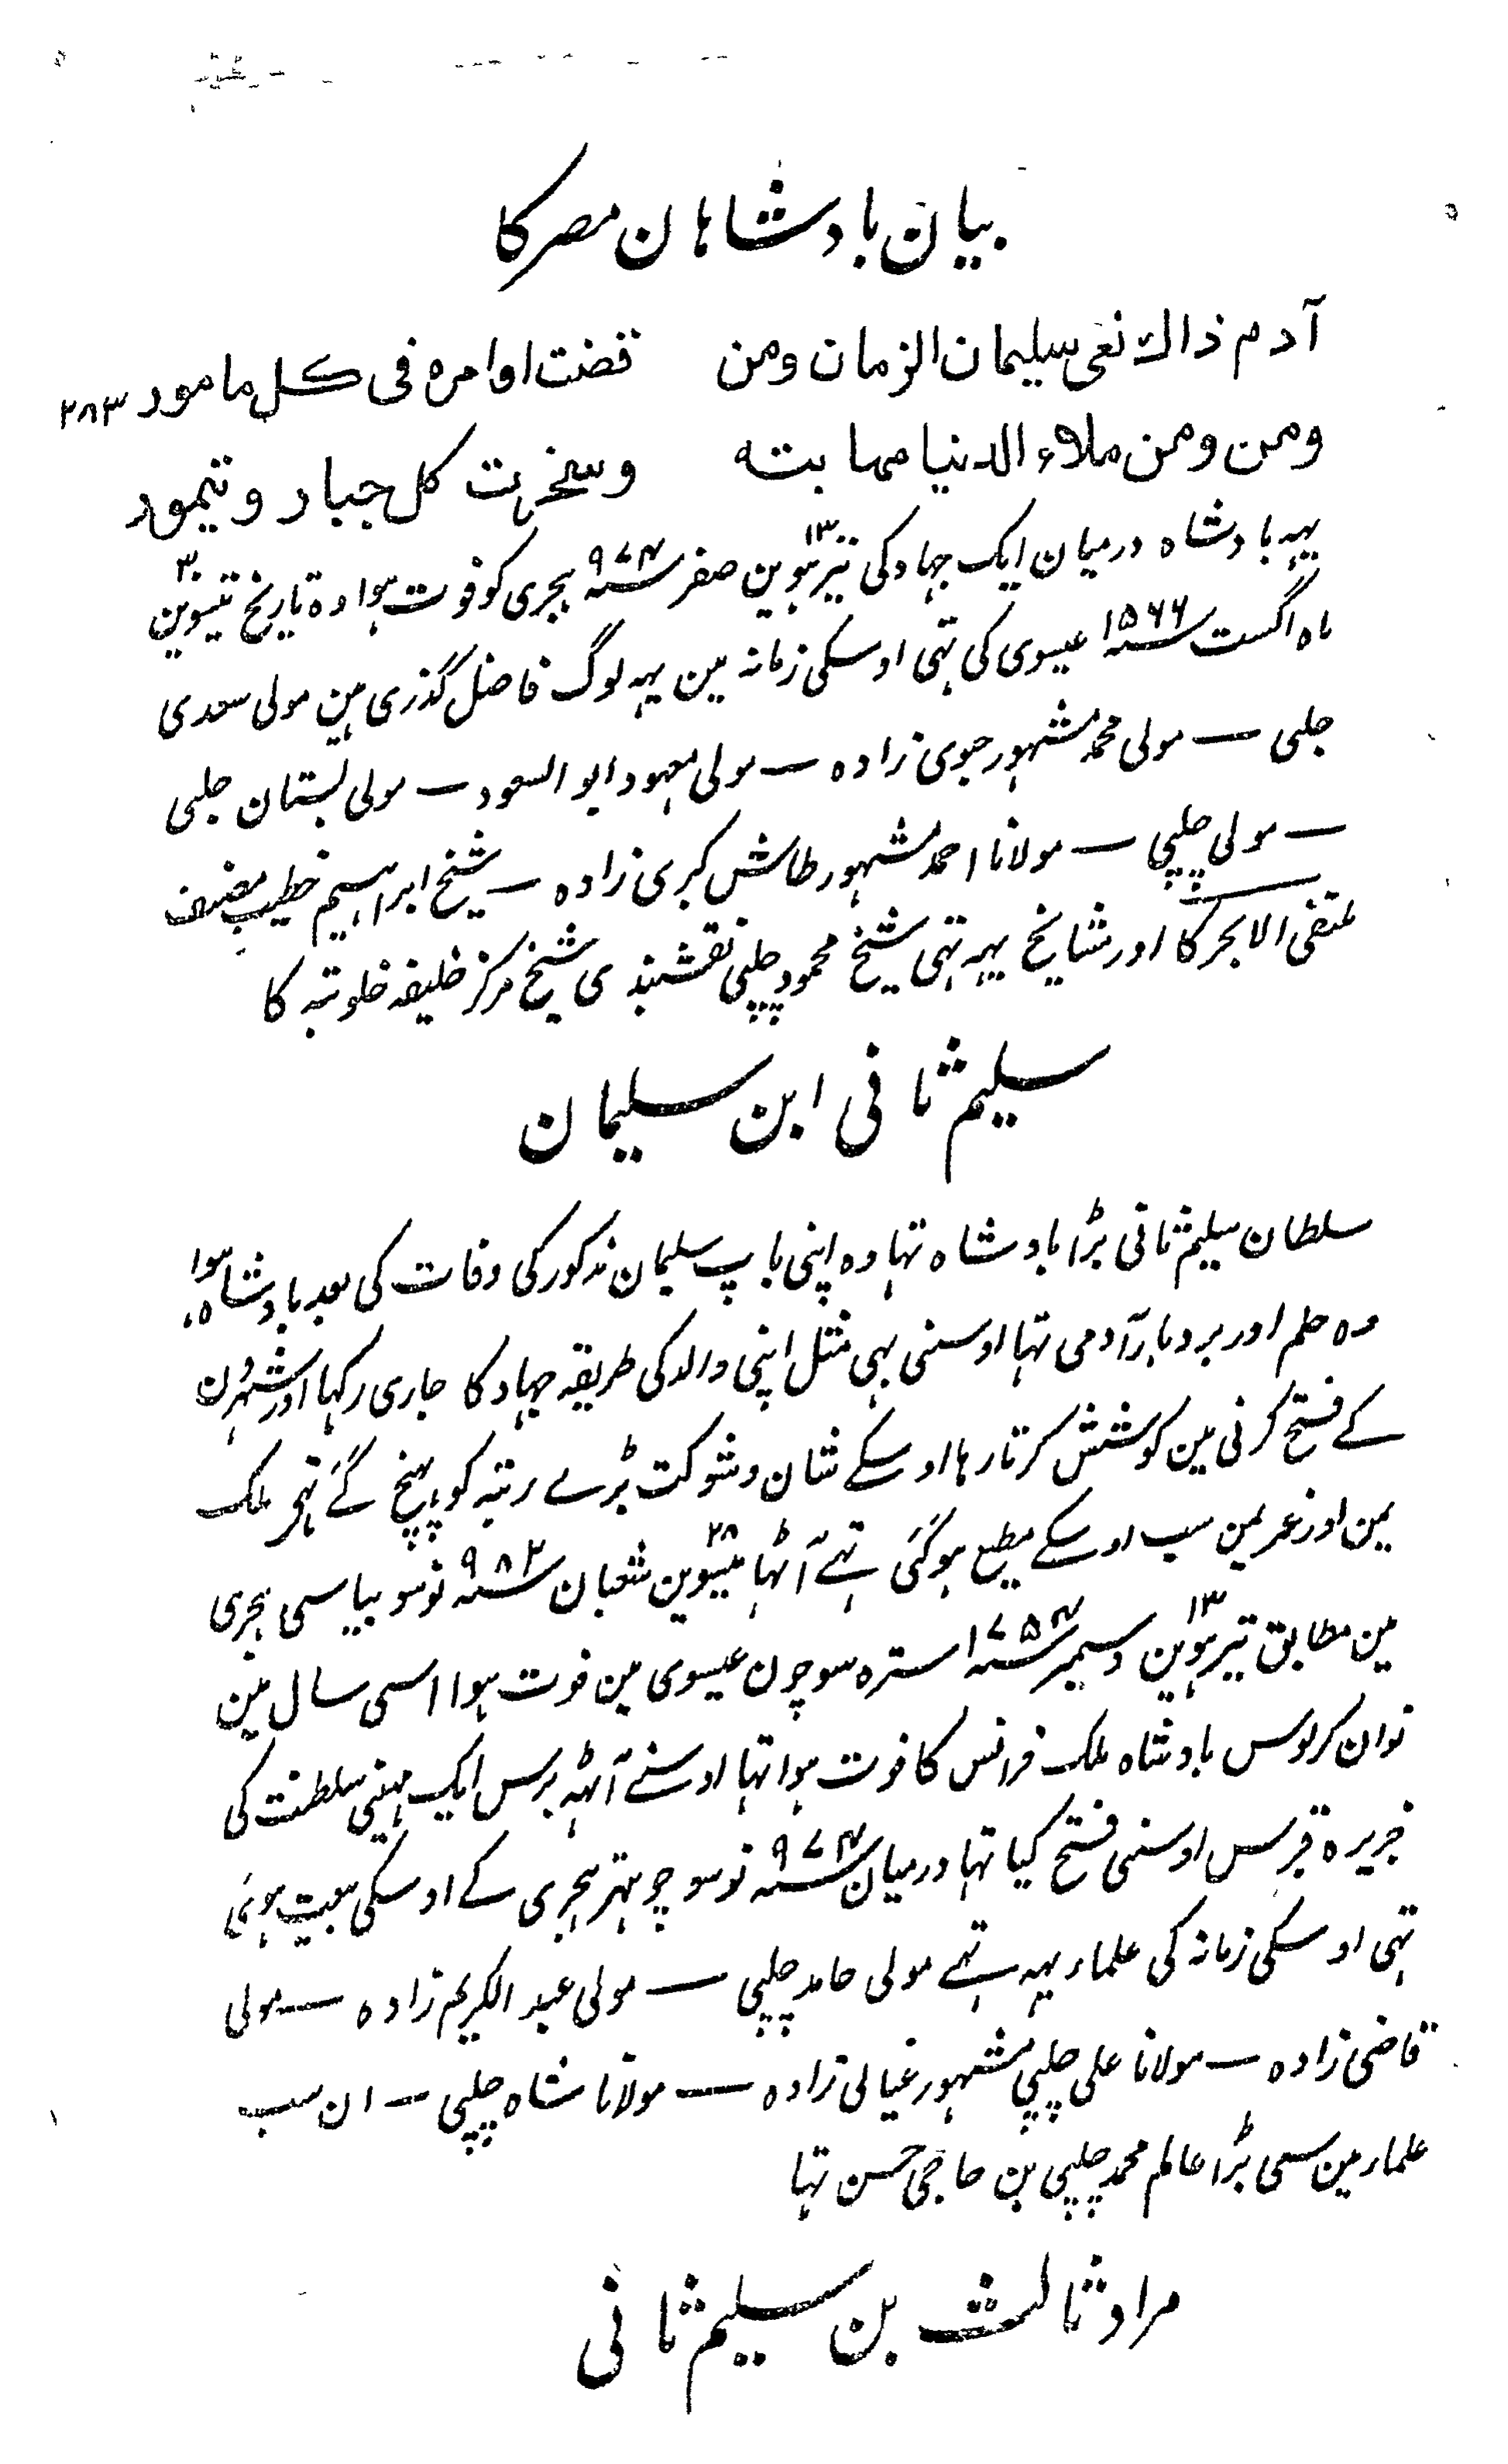 بیان بادشاهان مصر کا
آدم ذاك نعی سلیمان الزمان ومن قضت اوامره فی کل مامور ۲۸۳
ومن ومن ملاء الدنیا مهابته وسخرت کل جبار وتیمور
یہہ بادشاہ درمیان ایک جہاد کی تیرہوین ۱۳ صفر سنہ ۹۷۴ ہجری کو فوت ہوا وہ تاریخ تیسوین ۳۰
ماہ اگست سنہ ۱۵۶۶ عیسوی کی تہی اوسکی زمانہ مین یہہ لوگ فاضل گذری ہین مولی سعدی
جلبی — مولی محمد مشہور جوی زادہ — مولی معہود ابو السعود — مولی بستان جلبی
— مولی چلپی — مولانا احمد مشہور طاش کبری زادہ — شیخ ابراہیم خطیب مصنف
ملتقی الابحر کا اور مشایخ یہہ تہی شیخ محمود چلپی نقشبندی شیخ مرکز خلیفہ خلوتیہ کا
سلیم ثانی ابن سلیمان
سلطان سلیم ثانی بڑا بادشاہ تہا وہ اپنی باپ سلیمان مذکور کی وفات کی بعد بادشاہ ہوا
وہ حلم اور بردبار آدمی تہا اوسنی بہی مثل اپنی والد کی طریقہ جہاد کا جاری رکہا اور شہرون
کے فتح کرنی مین کوشش کرتا رہا اوسکے شان وشوکت بڑے رتبہ کو پہنچ گئے تہی ملک
یمن اور غیر یمن سب اوسکے مطیع ہو گئی تہے آٹہائیسوین ۲۸ شعبان سنہ ۹۸۲ نوسو بیاسی ہجری
مین مطابق تیرہوین ۱۳ دسمبر سنہ ۱۷۵۴ سترہ سو چون عیسوی مین فوت ہوا اسی سال مین
نوان کرلوس بادشاہ ملک فرانس کا فوت ہوا تہا اوسنے آٹہہ برس ایک مہینی سلطنت کی
جزیرہ قبرس اوسنی فتح کیا تہا درمیان سنہ ۹۷۴ نوسو چوہتر ہجری کے اوسکی بیعت ہوئی
تہی اوسکی زمانہ کی علماء یہہ تہے مولی حامد چلپی — مولی عبد الکریم زادہ — مولی
قاضی زادہ — مولانا علی چلپی مشہور غیالی زادہ — مولانا شاہ چلپی — ان سب
علماء مین سی بڑا عالم محمد چلپی بن حاجی حسن تہا
مراد ثالث بن سلیم ثانی